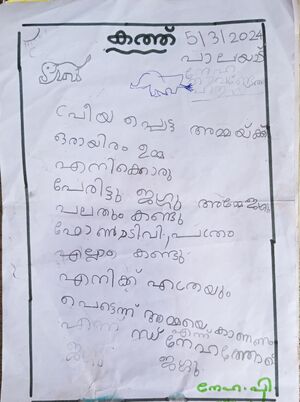 കത്ത് 5/3/2024
പാലയാട്
നേഹ
പ്രിയപ്പെട്ട അമ്മയ്ക്ക്
ഒരായിരം ഉമ്മ
എനിക്കൊരു
പേരിട്ടു ജഗ്ഗു അമ്മേ
പലതും കണ്ടു
ഫോൺ ടിവി, പന്തം
എല്ലാം കണ്ടു
എനിക്ക് എത്രയും
പെട്ടെന്ന് അമ്മയെ കാണണം
എന്ന് സ്നേഹത്തോടെ
ജഗ്ഗു ജഗ്ഗു
നേഹ. പി